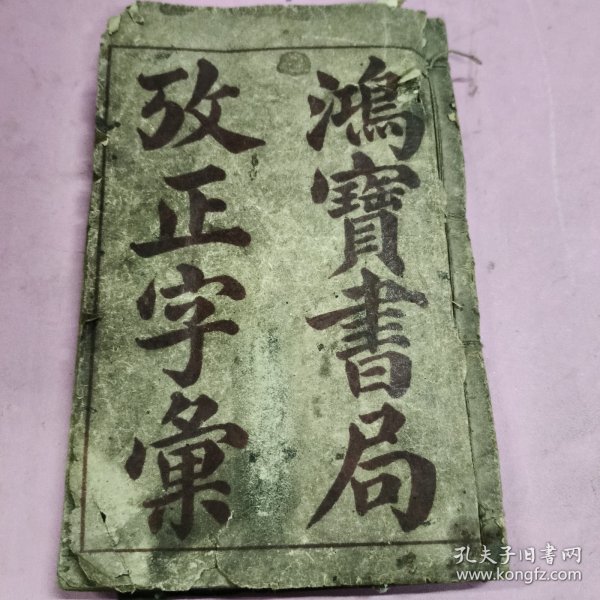 鴻寶書局
攷正字彙
孔夫子旧書网
www.kongfz.com